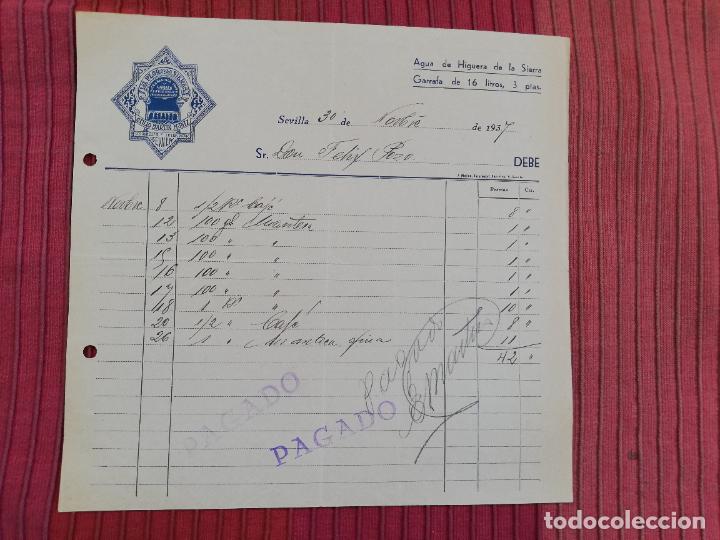 Agua de Higuera de la Sierra
Garrafa de 16 litros, 3 ptas.
Sevilla 30 de Novbre de 1937
Sr. Don Felix Pozo
DEBE
Pesetas Cts.
Novbre 8 1/2 Kº Café 8 "
12 100 g Manteca 1 "
13 100 " " 1 "
15 100 " " 1 "
16 100 " " 1 "
17 100 " " 1 "
18 1 Kº " 10 "
20 1/2 " Café 8 "
26 1 " Manteca fina 11
42 "
Pagado
PAGADO
PAGADO
todocoleccion.net